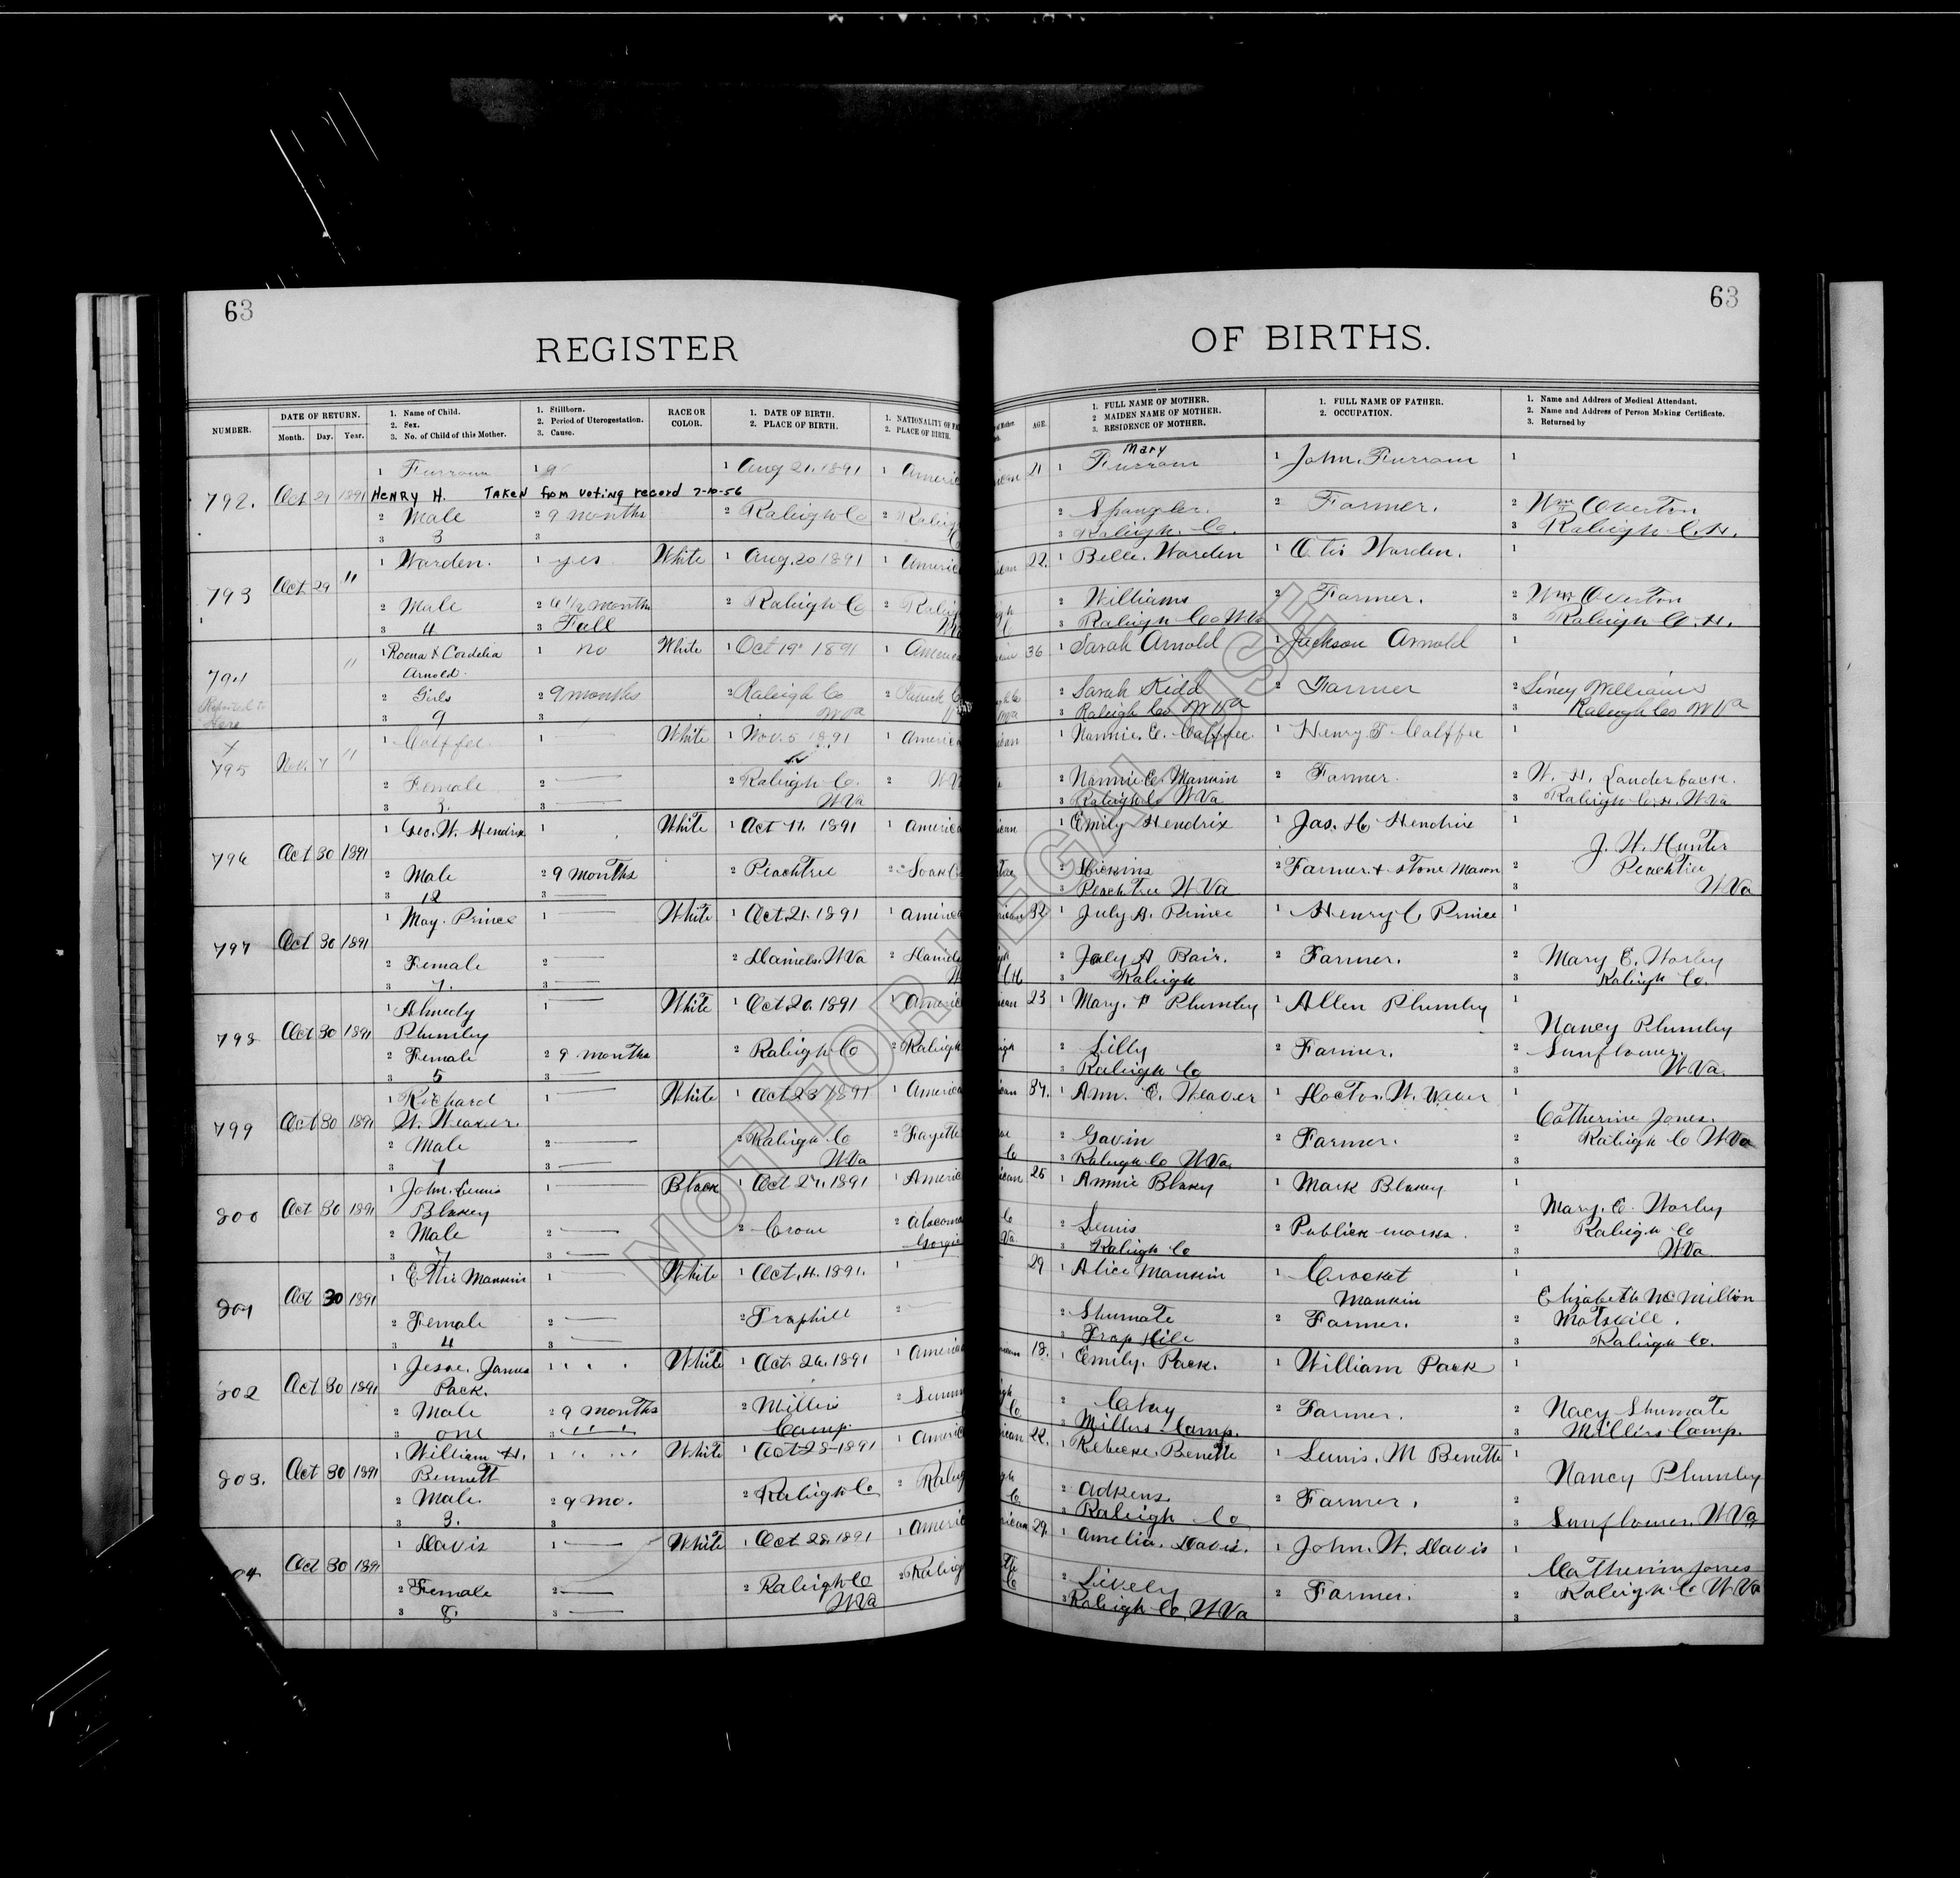 63
63
REGISTER
OF BIRTHS.
NUMBER.
DATE OF RETURN.
Month. Day. Year.
1. Name of Child.
2. Sex.
3. No. of Child of this Mother.
1. Stillborn.
2. Period of Uterogestation.
3. Cause.
RACE OR
COLOR.
1. DATE OF BIRTH.
2. PLACE OF BIRTH.
1. NATIONALITY OF
2. PLACE OF BIRTH.
AGE.
1. FULL NAME OF MOTHER.
2 MAIDEN NAME OF MOTHER.
3. RESIDENCE OF MOTHER.
1. FULL NAME OF FATHER.
2. OCCUPATION.
1. Name and Address of Medical Attendant.
2. Name and Address of Person Making Certificate.
3. Returned by
Mary
1 Furrow 1 1 Aug 21. 1891 1 Americ 21 1 Furrow 1 John. Furrow 1
792. Oct 29 1891 HENRY H. TAKEN from voting record 7-10-56
2 Male 2 9 months 2 Raleigh Co 2 Raleig 2 Spangler. 2 Farmer. 2 Wm Overton
3 3 3 3 Raleigh. Co. 3 Raleigh C.H.
1 Warden. 1 yes White 1 Aug. 20 1891 1 Americ 22. 1 Belle. Warden 1 Otis Warden. 1
793 Oct 29 "
2 Male 2 6 1/2 months 2 Raleigh Co 2 Raleig 2 Williams 2 Farmer. 2 Wm Overton
3 4 3 Fall 3 Raleigh Co W Va 3 Raleigh C.H.
1 Roena & Cordelia 1 no White 1 Oct 19" 1891 1 America 36 1 Sarah Arnold 1 Jackson Arnold 1
Arnold.
794 "
2 Girls 2 9 months 2 Raleigh Co W Va 2 2 Sarah Kidd 2 Farmer 2 Siney Williams
Here
3 9 3 3 Raleigh Co W Va 3 Raleigh Co W Va
1 Calffee. 1 White 1 Nov. 5 1891 1 America 1 Nannie. C. Calffee. 1 Henry T Calffee 1
795 Nov. 7 "
2 Female 2 2 Raleigh Co. W Va 2 W V 2 Nannie C. Mankin 2 Farmer. 2 W. H. Lauderback.
3 3. 3 3 Raleigh Co W Va 3 Raleigh C.H. W Va
1 Geo. W. Hendrix 1 White 1 Oct 11. 1891 1 America 1 Emily Hendrix 1 Jas. H. Hendrix 1
796 Oct 30 1891 J. H. Hunter
2 Male 2 9 months 2 Peachtree 2 2 2 Farmer & Stone Mason 2 Peachtree
3 12 3 3 Peach Tree W Va 3 W Va
1 May. Prince 1 White 1 Oct. 21. 1891 1 Americ 32 1 July A. Prince 1 Henry C Prince 1
797 Oct 30 1891
2 Female 2 2 Daniels. W Va 2 Daniels 2 July A Bair. 2 Farmer. 2 Mary E. Worley
3 7. 3 3 Raleigh 3 Raleigh Co.
1 Almedy 1 White 1 Oct. 20. 1891 1 Americ 23 1 Mary. P Plumley 1 Allen Plumley 1
798 Oct 30 1891 Plumley Nancy Plumley
2 Female 2 9 months 2 Raleigh Co 2 Raleigh 2 Lilly 2 Farmer. 2 Sunflower.
3 5 3 3 Raleigh Co 3 W Va.
1 Richard 1 White 1 Oct 23 1891 1 America 37. 1 Ann. E. Weaver 1 Hector. W. Weaver 1
799 Oct 30 1891 W. Weaver. Catherine Jones.
2 Male 2 2 Raleigh Co W Va 2 Fayette 2 Gavin 2 Farmer. 2 Raleigh Co W Va
3 7 3 3 Raleigh Co W Va. 3
1 John. Lewis 1 Black 1 Oct 27. 1891 1 Americ 25 1 Annie Blakey 1 Mark Blakey 1
800 Oct 30 1891 Blakey Mary. E. Worley
2 Male 2 2 Crow 2 2 Lewis 2 Publick works. 2 Raleigh Co
3 7 3 3 Raleigh Co 3 W Va
1 Effie Mankin 1 White 1 Oct. 4. 1891. 1 29 1 Alice Mankin 1 Crocket 1
801 Oct 30 1891 Mankin Elizabeth McMillion
2 Female 2 2 Traphill 2 2 Shumate 2 Farmer. 2
3 4 3 3 Trap Hill 3 Raleigh Co.
1 Jesse. James 1 White 1 Oct. 26. 1891 1 America 18. 1 Emily. Pack. 1 William Pack 1
802 Oct 30 1891 Pack.
2 Male 2 9 months 2 Millers 2 Summ 2 Clay 2 Farmer. 2 Nacy Shumate
3 one 3 Camp 3 Millers Camp. 3 Millers Camp.
1 William H. 1 White 1 Oct 28 1891 1 Americ 22. 1 Rebecke. Benette 1 Lewis. M Benette 1
803. Oct 30 1891 Bennett Nancy Plumley
2 Male. 2 9 mo. 2 Raleigh Co 2 Raleig 2 Adkens. 2 Farmer. 2
3 3. 3 3 Raleigh Co 3 Sunflower. W Va
1 Davis 1 White 1 Oct 28. 1891 1 Americ 29. 1 Amelia. Davis. 1 John. W. Davis 1
04 Oct 30 1891 Catherine Jones
2 Female 2 2 Raleigh Co W Va 2 Raleig 2 Lively 2 Farmer. 2 Raleigh Co W Va
3 8 3 3 Raleigh Co. W Va 3
NOT FOR LEGAL USE